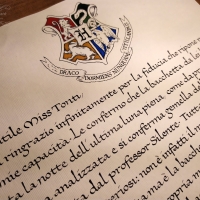 DRACO DORMIENS NUNQUAM TITILLANDUS
tile Miss Tonti,
ringrazio infinitamente per la fiducia che ripone n
orie capacità. Le confermo che la bacchetta da le
ta la notte dell'ultima luna piena, come da pr
analizzata e si conferma gemella de
a dal professor Silente. Tutt
eriosi: non è infatti
ma è la bacch
opria m